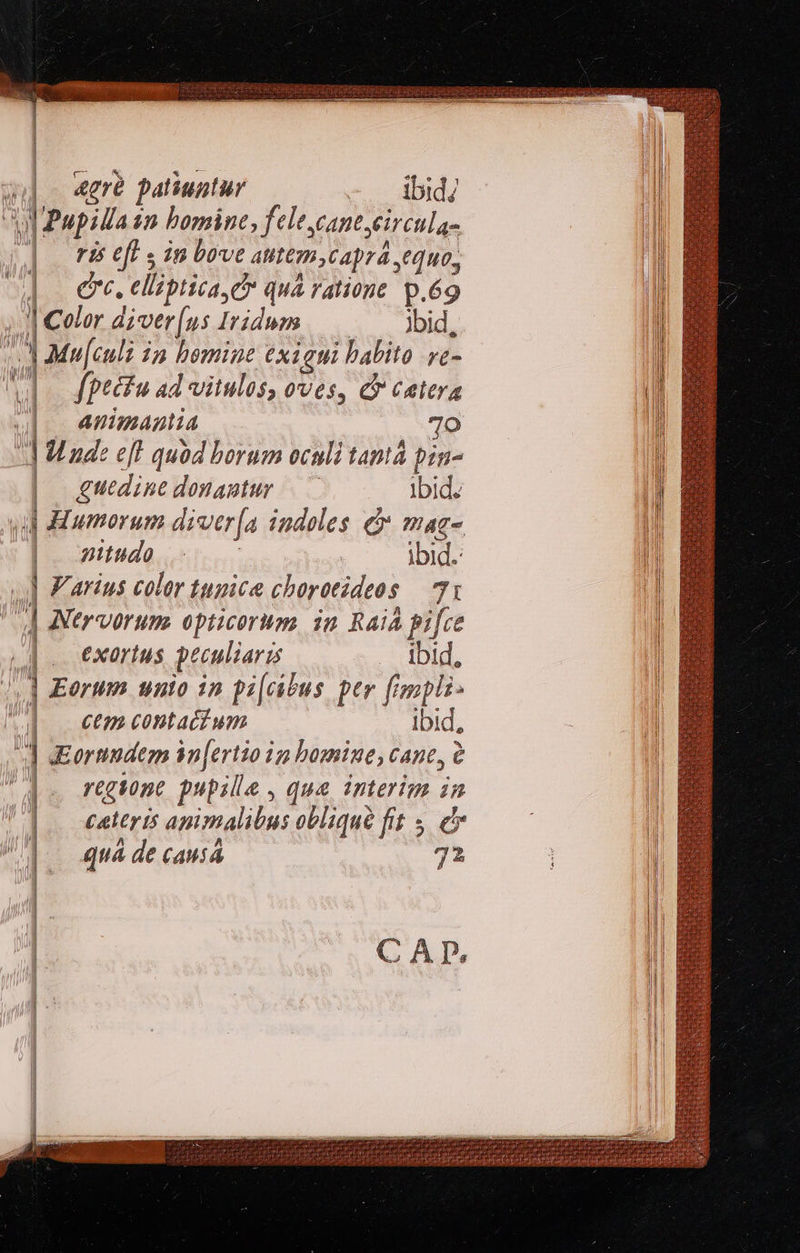 ægrè patiuntur ibid.
Pupilla in homine, fele, cane, circula-
ris eſt, in bove autem, caprâ, equo,
&c. elliptica, & quâ ratione p.69
Color diverſus Iridum ibid.
Muſculi in homine exigui habito re-
ſpectu ad vitulos, oves, & cætera
animantia 70
Unde eſt quòd horum oculi tantâ pin-
guedine donantur ibid.
Humorum diverſa indoles & mag-
nitudo ibid.
Varius color tunicæ choroeideos 71
Nervorum opticorum in Raiâ piſce
exortus peculiaris ibid.
Eorum unio in piſcibus per ſimpli-
cem contactum ibid.
Eorundem inſertio in homine, cane, è
regione pupillæ, quæ interim in
cæteris animalibus obliquè fit; &
quâ de causâ 72
CAP.